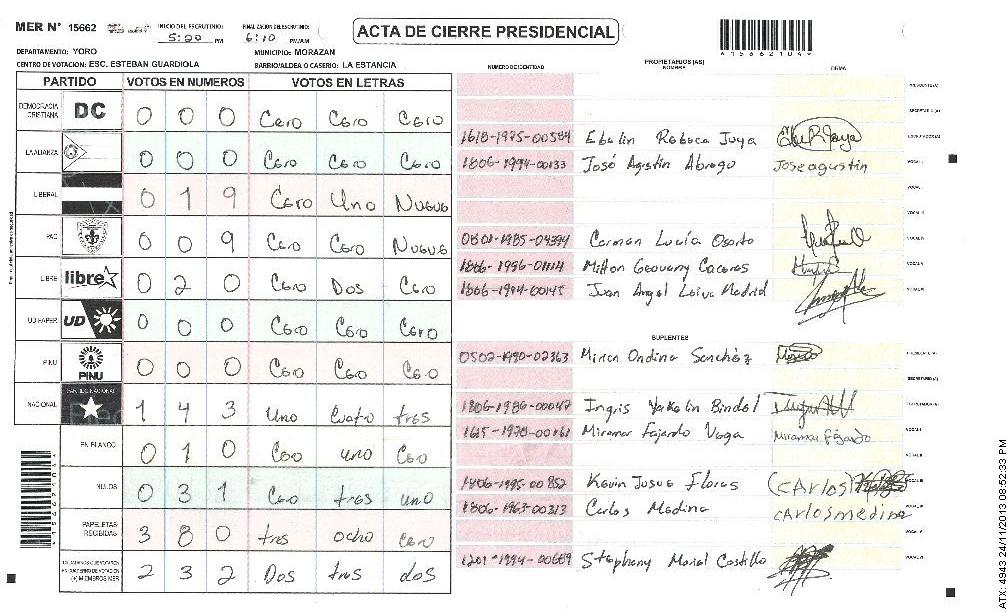 MER N° 15662 INICIO DEL ESCRUTINIO: 5:20 PM FINALIZACION DEL ESCRUTINIO: 6:10 PM/AM
ACTA DE CIERRE PRESIDENCIAL
DEPARTAMENTO: YORO MUNICIPIO: MORAZAN
CENTRO DE VOTACION: ESC. ESTEBAN GUARDIOLA BARRIO/ALDEA O CASERIO: LA ESTANCIA
PARTIDO VOTOS EN NUMEROS VOTOS EN LETRAS
DEMOCRACIA CRISTIANA DC 0 0 0 Cero Cero Cero
LA ALIANZA 0 0 0 Cero Cero Cero
LIBERAL 0 1 9 Cero Uno Nueve
PAC 0 0 9 Cero Cero Nueve
LIBRE libre 0 2 0 Cero Dos Cero
UD FAPER UD 0 0 0 Cero Cero Cero
PINU PINU 0 0 0 Cero Cero Cero
NACIONAL PARTIDO NACIONAL 1 4 3 Uno Cuatro tres
EN BLANCO 0 1 0 Cero uno Cero
NULOS 0 3 1 Cero tres uno
PAPELETAS RECIBIDAS 3 8 0 tres ocho cero
CIUDADANOS QUE VOTARON EN CUADERNO DE VOTACION (+) MIEMBROS MER 2 3 2 Dos tres dos
415662104
NUMERO DE IDENTIDAD PROPIETARIOS (AS) NOMBRE FIRMA
PRESIDENTE (A)
SECRETARIO (A)
1618-1975-00584 Ebelin Rebeca Joya
1806-1994-00133 José Agustin Abrego Jose agustin VOCAL I
0801-1985-04394 Carmen Lucía Osorto
Milton Geovany Caceres
1806-1994-00145 Juan Angel Leiva Madrid
SUPLENTES
0502-1990-02363 Mirna Ondina Sanchéz PRESIDENTE (A)
SECRETARIO (A)
1806-1986-00047 Ingris Yakelin Bindel
1615-1970-00161 Miramar Fajardo Vega Miramar Fajardo VOCAL I
1806-1995-00852 Kevin Josue Flores (CArlos)
1806-1963-00313 Carlos Medina CArlosmedina
1201-1994-00689 Stephany Mariel Castillo
ATX: 4943 24/11/2013 08:52:33 PM